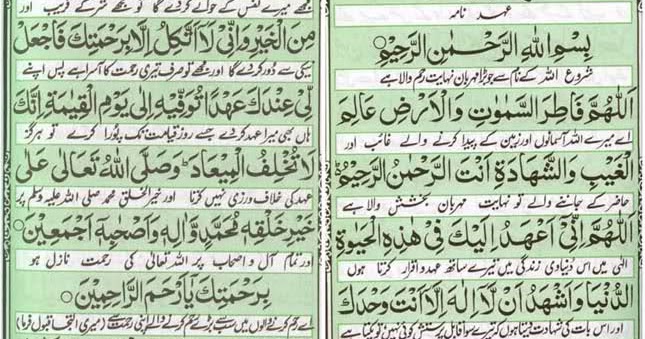 عہد نامہ
بِسْمِ اللهِ الرَّحْمٰنِ الرَّحِيْمِ
شروع اللہ کے نام سے جو بڑا مہربان نہایت رحم والا ہے
اَللّٰهُمَّ فَاطِرَ السَّمٰوٰتِ وَالْاَرْضِ عَالِمَ
اے میرے اللہ آسمانوں اور زمین کے پیدا کرنے والے غائب اور
الْغَيْبِ وَالشَّهَادَةِ اَنْتَ الرَّحْمٰنُ الرَّحِيْمُ
حاضر کے جاننے والے تو نہایت مہربان بخشش والا ہے
اَللّٰهُمَّ اِنِّيْ اَعْهَدُ اِلَيْكَ فِيْ هٰذِهِ الْحَيٰوةِ
الٰہی میں اس دنیاوی زندگی میں تیرے ساتھ عہد و اقرار کرتا ہوں
الدُّنْيَا وَاَشْهَدُ اَنْ لَّا اِلٰهَ اِلَّا اَنْتَ وَحْدَكَ
اور اس بات کی شہادت دیتا ہوں کہ تیرے سوا قابل پرستش کوئی نہیں تو یکتا ہے
مجھے میرے نفس کے حوالے کر دے گا تو مجھے شر کے قریب اور
مِنَ الْخَيْرِ وَاِنِّيْ لَا اَتَّكِلُ اِلَّا بِرَحْمَتِكَ فَاجْعَلْ
نیکی سے دور کر دے گا اور مجھے تو صرف تیری رحمت کا آسرا ہے پس اپنے
لِّيْ عِنْدَكَ عَهْدًا تُوَفِّيْهِ اِلٰى يَوْمِ الْقِيٰمَةِ اِنَّكَ
ہاں بھی میرا عہد کر دے جسے روز قیامت تک پورا کرے تو ہرگز
لَا تُخْلِفُ الْمِيْعَادَ وَصَلَّى اللهُ تَعَالٰى عَلٰى
عہد کی خلاف ورزی نہیں کرتا اور خیر الخلق محمد صلی اللہ علیہ وسلم پر
خَيْرِ خَلْقِهٖ مُحَمَّدٍ وَّاٰلِهٖ وَاَصْحَابِهٖ اَجْمَعِيْنَ
اور تمام آل و اصحاب پر اللہ تعالیٰ کی رحمت نازل ہو
بِرَحْمَتِكَ يَا اَرْحَمَ الرَّاحِمِيْنَ
اے رحم کرنے والوں میں سب سے بڑے رحم کرنے والے اپنی رحمت سے (میری التجا قبول فرما)